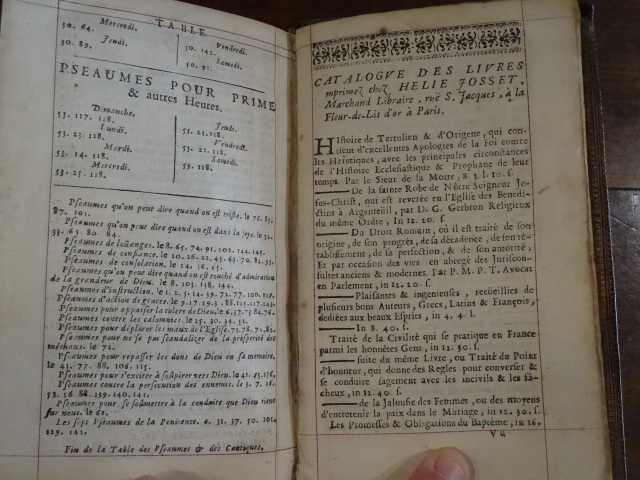 TABLE
Mercredi.
50. 64.
Vendredi.
Jeudi.
50. 142.
50. 89.
Samedi.
50. 91.
PSEAUMES POUR PRIME
& autres Heures.
Dimanche.
53. 117. 118.
Lundi.
53. 23. 118.
Mardi.
53. 24. 118.
Mercredi.
53. 25. 118.
Jeudi.
53. 22. 118.
Vendredi.
53. 21. 118.
Samedi.
53. 118.
Pseaumes qu'on peut dire quand on est triste. le 76. 85.
87. 101.
Pseaumes qu'on peut dire quand on est dans la joye. le 32.
33. 65. 80. 84.
Pseaumes de loüanges. le 8. 65. 74. 92. 102. 144. 145.
Pseaumes de confiance. le 10. 26. 22. 45. 63. 70. 82. 93.
Pseaumes de consolation. le 24. 56. 65.
Pseaumes qu'on peut dire quand on est touché d'admiration
de la grandeur de Dieu. le 8. 103. 138. 144.
Pseaumes d'instruction. le 1. 2. 5. 14. 39. 72. 77. 100. 118.
Pseaumes d'action de graces. le 9. 17. 29. 3 . 88. 115. 117. 143.
Pseaumes pour appaiser la colere de Dieu. le 6. 37. 73. 84. 76.
Pseaumes contre les calomnies. le 25. 30. 34. 51.
Pseaumes pour déplorer les maux de l'Eglise. 73. 78. 79. 82.
Pseaumes pour ne se pas scandalizer de la prosperité des
méchans. le 72.
Pseaumes pour repasser les dons de Dieu en sa memoire.
le 43. 77. 88. 106. 115.
Pseaumes pour s'exciter à soûpirer vers Dieu. le 41. 83. 136.
Pseaumes contre la persecution des ennemis. le 3. 7. 16.
53. 56. 88. 139. 140. 141.
Pseaumes pour se soûmettre à la conduite que Dieu tient
sur nous. le 61.
Les sept Pseaumes de la Penitence. 6. 31. 37. 50. 101.
129. 142.
Fin de la Table des Pseaumes & des Cantiques.
CATALOGVE DES LIVRES
mprimez chez HELIE JOSSET,
Marchand Libraire, ruë S. Jacques, à la
Fleur-de-Lis d'or à Paris.
HIstoire de Tertulien & d'Origene, qui con-
tient d'excellentes Apologies de la Foi contre
les Heretiques, avec les principales circonstances
de l'Histoire Ecclesiastique & Prophane de leur
temps. Par le Sieur de la Motte, 8. 3. l. 10. s.
De la sainte Robe de Nôtre Seigneur Je-
sus-Christ, qui est reverée en l'Eglise des Benedi-
ctins à Argenteüil, par D. G. Gerbron Religieux
du même Ordre, In 12. 20. s.
Du Droit Romain, où il est traité de son
origine, de son progrés, de sa décadence, de son ré-
tablissement, de sa perfection, & de son autorité;
Et par occasion des vies en abregé des Juriscon-
sultes anciens & modernes. Par P. M. P. T. Avocat
en Parlement, in 12. 20. s.
Plaisantes & ingenieuses, recueillies de
plusieurs bons Auteurs, Grecs, Latins & François,
dediées aux beaux Esprits, in 4. 4. l.
In 8. 40. s.
Traité de la Civilité qui se pratique en France
parmi les honnêtes Gens, in 12. 30. s.
suite du même Livre, ou Traité du Point
d'honneur, qui donne des Regles pour converser &
se conduire sagement avec les incivils & les fâ-
cheux, in 12. 40. s.
de la Jalousie des Femmes, ou des moyens
d'entretenir la paix dans le Mariage, in 12. 30. s.
Les Promesses & Obligations du Baptême, in 16.
Vu